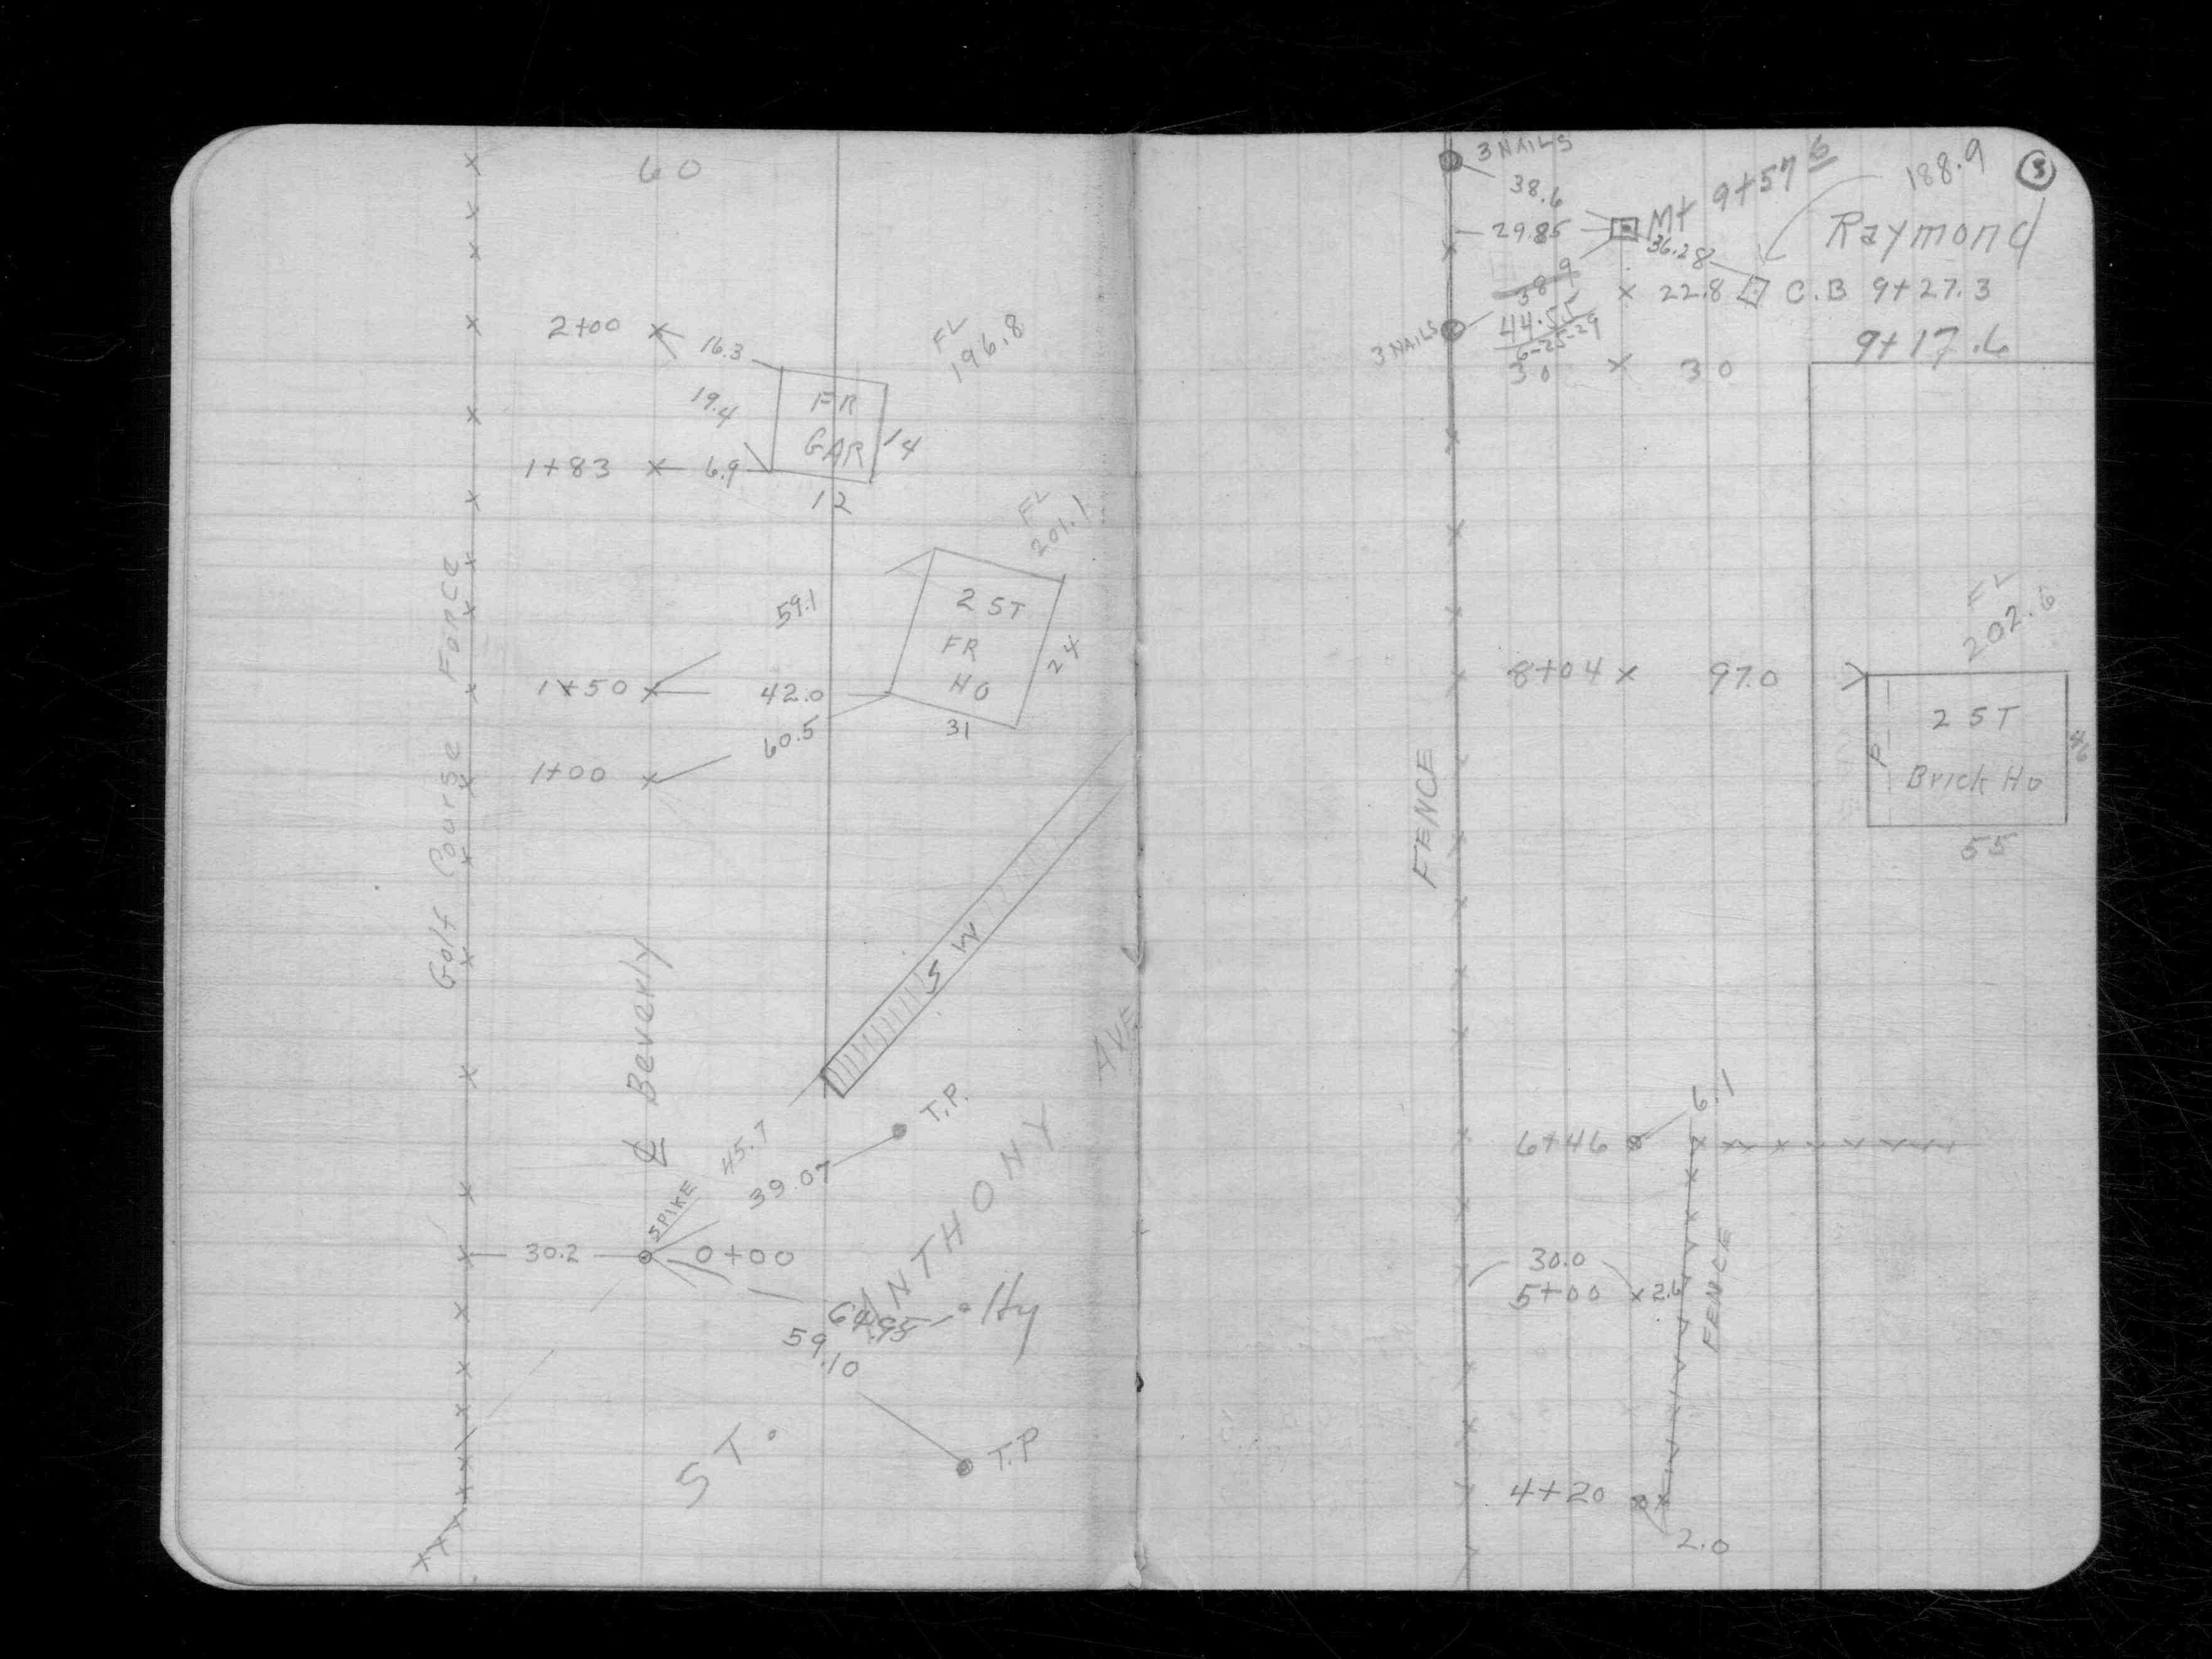 60
2+00
16.3
FL
196.8
19.4
FR
GAR
14
1+83
6.9
12
FL
201.1
59.1
2 ST
FR
HO
24
1+50
42.0
31
60.5
1+00
Golf Course Fence
S W
℄ Beverly
T.P.
45.7
39.07
SPIKE
30.2
0+00
ANTHONY AVE
Hy
59.10
ST.
T.P
3 NAILS
38.6
29.85
Mt 9+57 6
188.9
3
Raymond
36.28
38.9
22.8
C.B 9+27.3
3 NAILS
44.55
6-25-29
9+17.6
30
30
FL
202.6
8+04
97.0
2 ST
Brick Ho
P
46
55
FENCE
6.1
6+46
30.0
5+00
2.6
FENCE
4+20
2.0